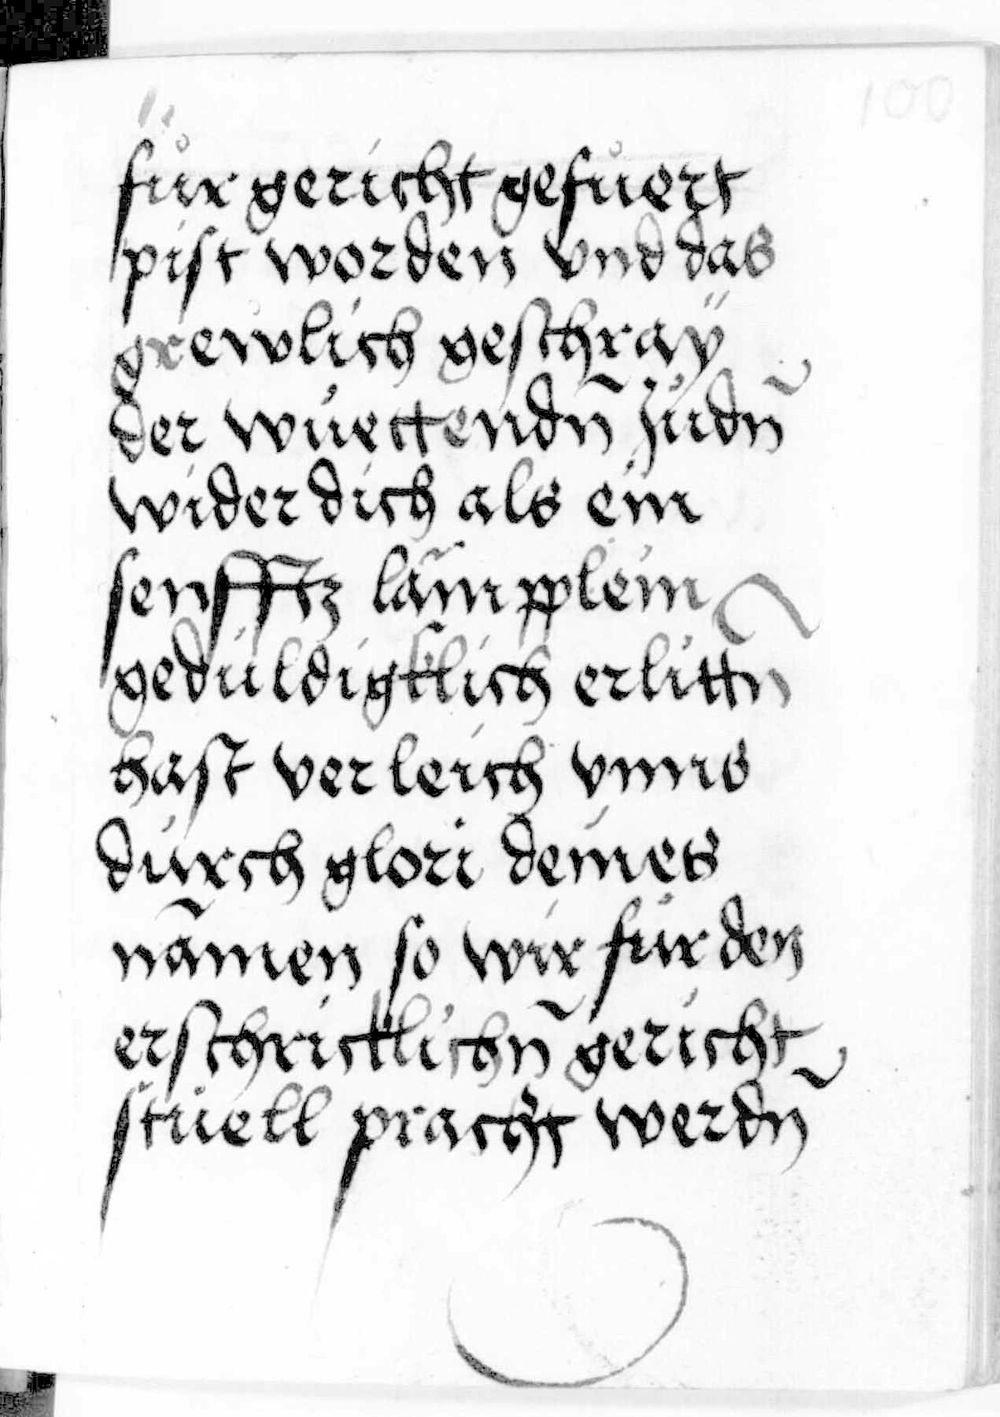 100
für gericht gefůert
pist worden vnd das
grewlich geschraÿ
der wüettendn̄ Jüdn̄
wider dich als ein
senfftz lämpplein
gedüldigklich erlittn
hast verleich vnns
dürch glori deines
nāmen so wir für den
erschricklichn̄ gericht
stüell pracht werdn̄